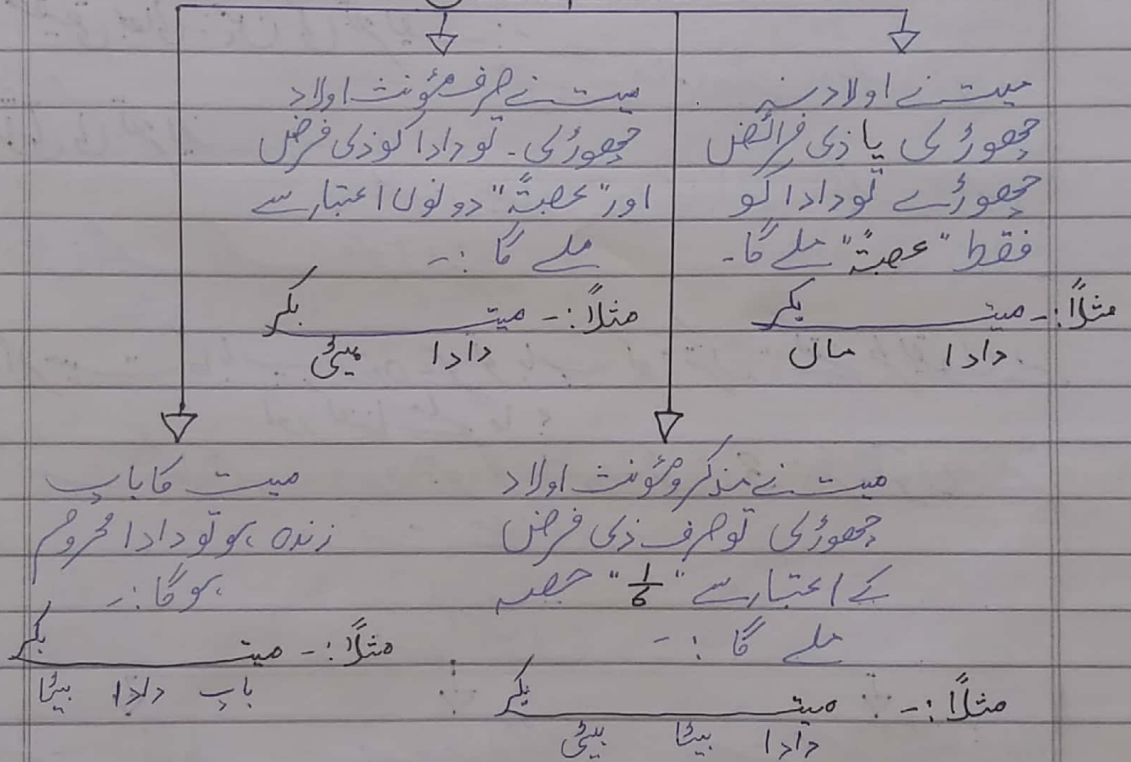 میت نے اولاد نہ
چھوڑی یا ذی فرائض
چھوڑے تو دادا کو
فقط "عصبۃً" ملے گا۔
مثلاً:- میت بکر
دادا ماں
میت نے صرف مؤنث اولاد
چھوڑی۔ تو دادا کو ذی فرض
اور "عصبۃً" دونوں اعتبار سے
ملے گا :-
مثلاً:- میت بکر
دادا بیٹی
میت نے مذکر و مؤنث اولاد
چھوڑی تو صرف ذی فرض
کے اعتبار سے "1/6" حصہ
ملے گا :-
مثلاً:- میت بکر
دادا بیٹا بیٹی
میت کا باپ
زندہ ہو تو دادا محروم
ہو گا:-
مثلاً:- میت بکر
باپ دادا بیٹا